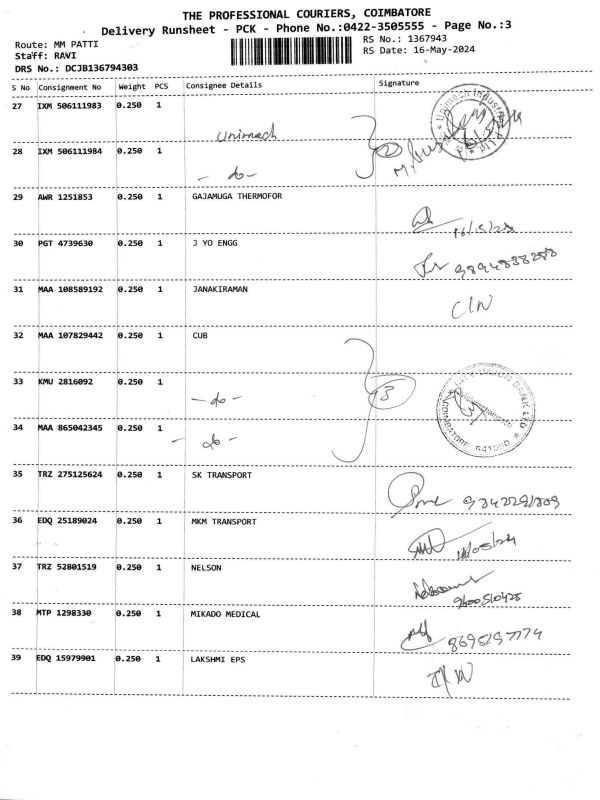 THE PROFESSIONAL COURIERS, COIMBATORE
Delivery Runsheet - PCK - Phone No.:0422-3505555 - Page No.:3
Route: MM PATTI
RS No.: 1367943
Staff: RAVI
RS Date: 16-May-2024
DRS No.: DCJB136794303
S No Consignment No Weight PCS Consignee Details Signature
27 IXM 506111983 0.250 1
Unimech
28 IXM 506111984 0.250 1
- do -
2
29 AWR 1251853 0.250 1 GAJAMUGA THERMOFOR
16/5/24
30 PGT 4739630 0.250 1 J YO ENGG
9894838288
31 MAA 108589192 0.250 1 JANAKIRAMAN
32 MAA 107829442 0.250 1 CUB
33 KMU 2816092 0.250 1
- do -
3
CITY UNION BANK LTD
COIMBATORE 641050
34 MAA 865042345 0.250 1
- do -
35 TRZ 275125624 0.250 1 SK TRANSPORT
36 EDQ 25189024 0.250 1 MKM TRANSPORT
16/05/24
37 TRZ 52801519 0.250 1 NELSON
9600510428
38 MTP 1298330 0.250 1 MIKADO MEDICAL
39 EDQ 15979901 0.250 1 LAKSHMI EPS